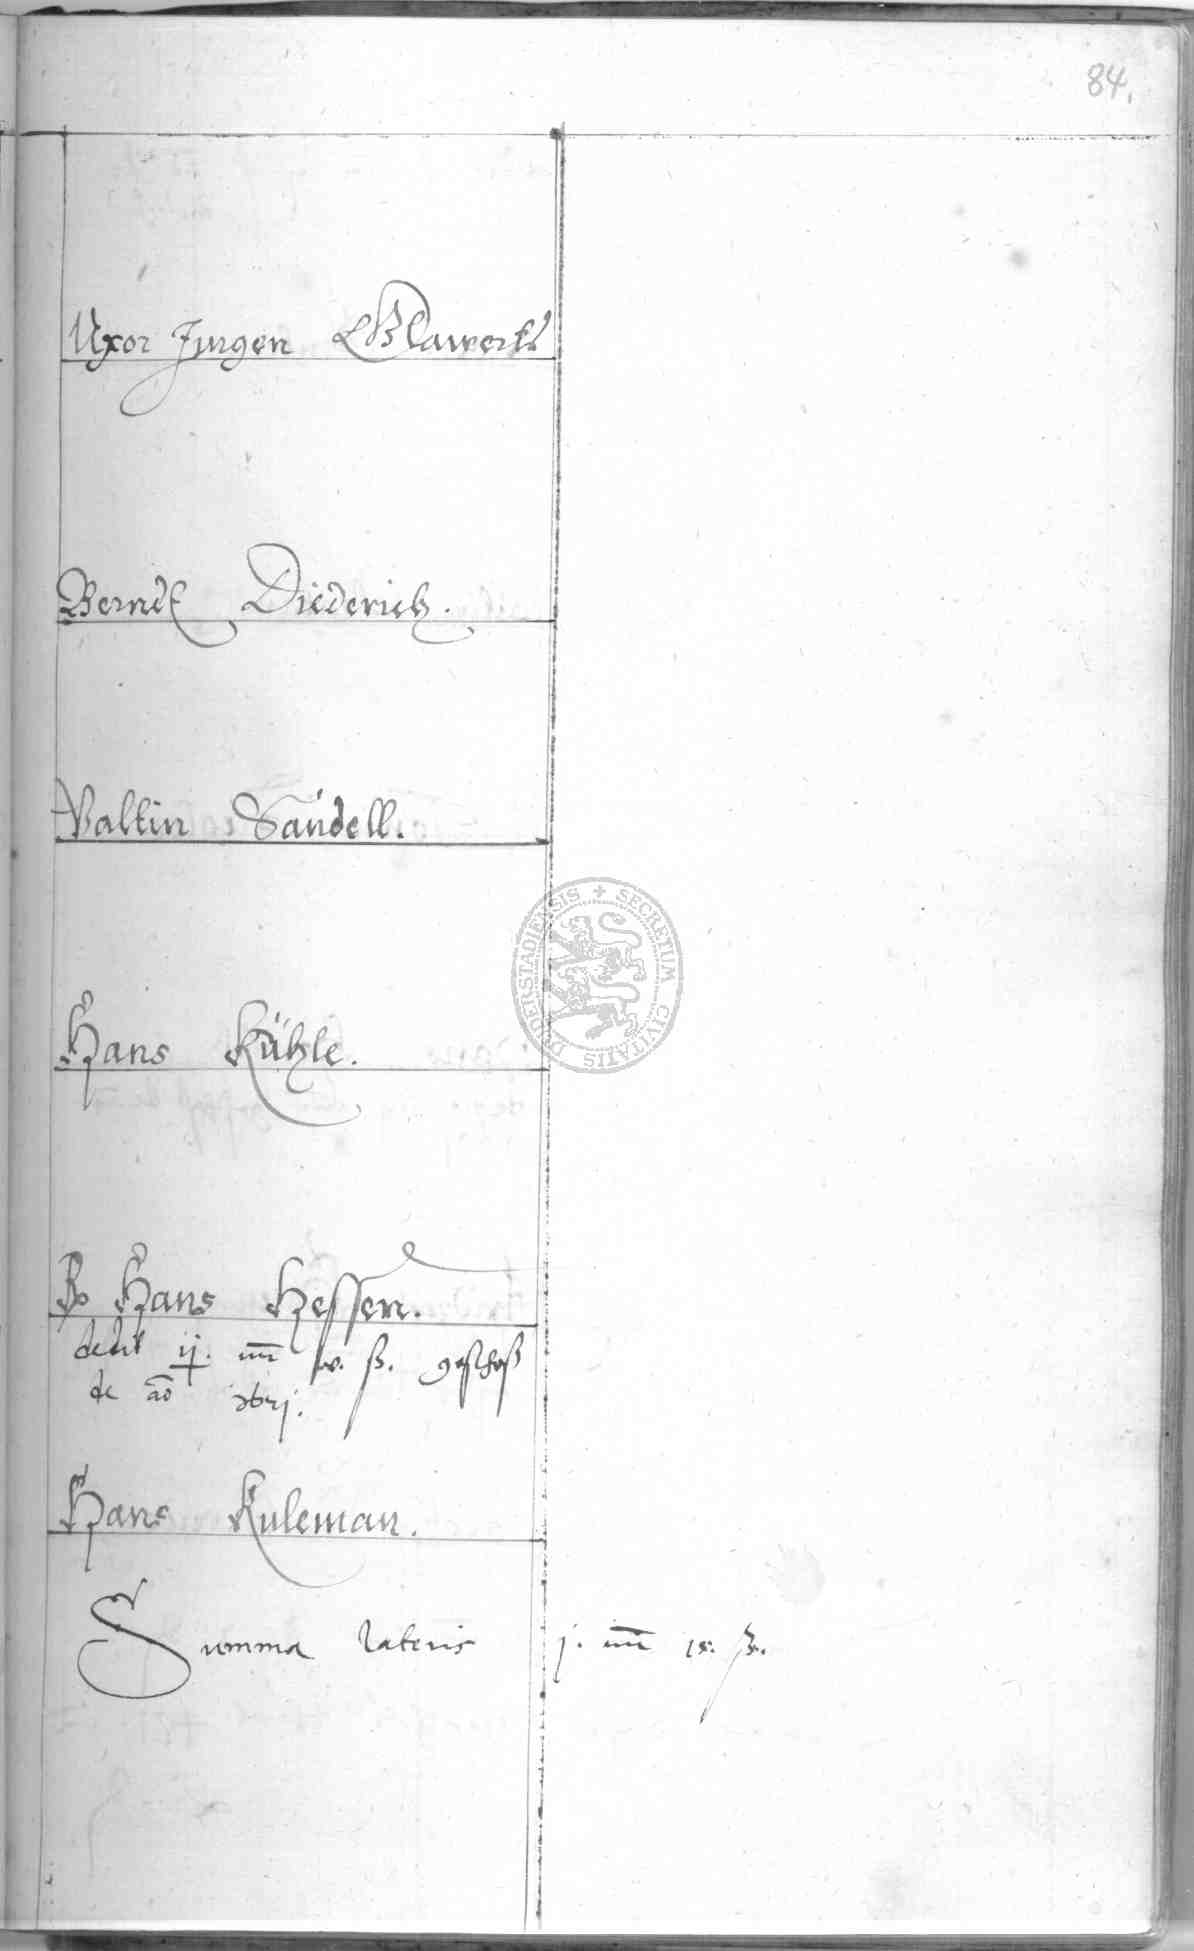 84.
Uxor Jurgen Blawerk
Berndt Diederich.
Valtin Sandell.
Hans Kühle.
Hans Hessen.
dedit ij. ß. geschoß
de ao
Hans Kuleman.
Summa lateris j. ß.
SECRETUM CIVITATIS DUDERSTADIENSIS